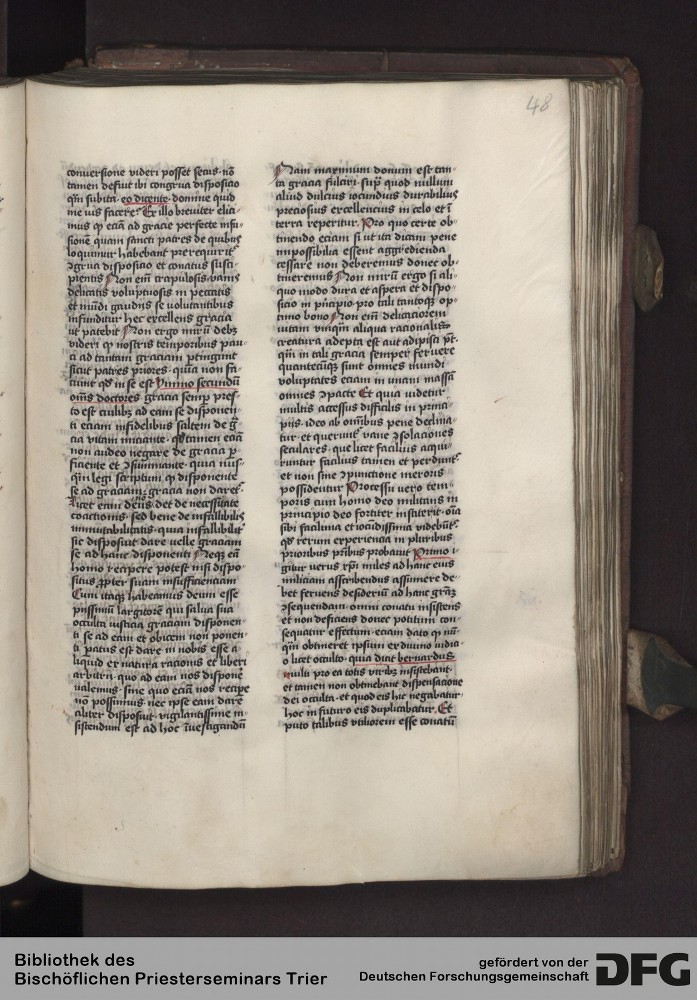 48
conversione videri posset secus. nō
tamen defuit ibi congrua disposicio
qm̄ subita. eo dicente. domine quid
me vis facere. Ex illo breviter elici⸗
mus qꝫ eciā ad gracie perfecte infu⸗
sionē quam sancti patres de quibus
loquimur habebant prerequirit᷑
ꝯgrua disposicio et conatus susci⸗
pientis Non em̄ crapulosis. vanis
delicatis voluptuosis in peccatis
et mūdi gaudiis se volutantibus
infunditur hec excellens gracia
ut patebit Non ergo mirū debꝫ
videri qꝫ nostris temporibus pau⸗
ci ad tantam graciam ꝑtingunt
sicut patres priores. quia non fa⸗
ciunt qd̄ in se est Vnmio secundū
om̄s doctores gracia semꝑ pres⸗
to est cuilibꝫ ad eam se disponen⸗
ti eciam infidelibus saltem de g̃
cia vitam iniciante. qdtamen eciā
non audeo negare de gracia ꝑ⸗
ficiente et ꝯsummante. quia nus⸗
qm̄ legi scriptum qꝫ disponente
se ad graciam gracia non daret᷑
licet eam deus. det de necessitate
coactionis. sed bene de infallibilis
immutabilitatis. quia infallibilit᷑
sic disposuit dare velle graciam
se ad hanc disponenti Neqꝫ eā
homo recipere potest nisi dispo⸗
situs ꝓpter suam insufficienciam
Cum itaqꝫ habeamus deum esse
piissimū largitorē qui salva sua
occulta iusticia graciam disponen⸗
ti se ad eam et obicem non ponen⸗
ti patus est dare in nobis esse a⸗
liquid ex natura racionis et liberi
arbitrii. quo ad eam nos disponē
valemus. sine quo eciā nos recipe
nō possumus. nec ipse eam dare
aliter disposuit. vigilantissime in⸗
sistendum est ad hoc īvestigandū
Nam maximum donum est tan⸗
ta gracia fulciri. suꝑ quod nullum
aliud dulcius iocundius durabilius
preciosius excellencius in celo et ī
terra reperitur. Pro quo certe ob⸗
tinendo eciam si ut ita dicam pene
impossibilia essent aggredienda
cessare non deberemus donec ob⸗
tineremus Non mirū ergo si ali⸗
quo modo dura et aspera et dispo⸗
sicio in pn̄cipio pro tali tantoqꝫ op⸗
timo bono Non em̄ deliciaciorem
vitam vnqm̄ aliqua racionalis
creatura adepta est aut adipisci pt᷑
qm̄ in tali gracia semper fervere
quantecūqꝫ sunt omnes mundi
voluptates eciam in unam massā
omnes ꝯpacte Et quia videtur
multis accessus difficilis in princi⸗
piis. ideo ab om̄ibus pene declina⸗
tur. et querunt᷑ vane ꝯsolaciones
seculares. que licet facilius acqui⸗
runtur facilius tamen et perdunt᷑
et non sine ꝯpunctione meroris
possidentur Processu vero tem⸗
poris cum homo deo militans in
principio deo fortiter institerit. oīa
sibi facilima et iocūdissima videbūt᷑
qd̄ rerum experiencia in pluribus
prioribus pribus probavit Primo i⸗
gitur verus xpī miles ad hanc eius
miliciam asscribendus assumere de⸗
bet fervens desideriū ad hanc grāꝫ
ꝯsequendam. omni conatu insistens
et non deficiens donec potitum con⸗
sequatur effectum. eciam dato qꝫ nū⸗
qm̄ obtineret ipsum ex divino iudici⸗
o licet occulto. quia dicit bernardus
Multi pro ea totis viribꝫ insistebant.
et tamen non obtinebant dispensacione
dei occulta. et quod eis hic negabatur.
hoc in futuro eis duplicabatur. Et
puto talibus vtiliorem esse conatū
Bibliothek des
Bischöflichen Priesterseminars Trier
gefördert von der
Deutschen Forschungsgemeinschaft
DFG